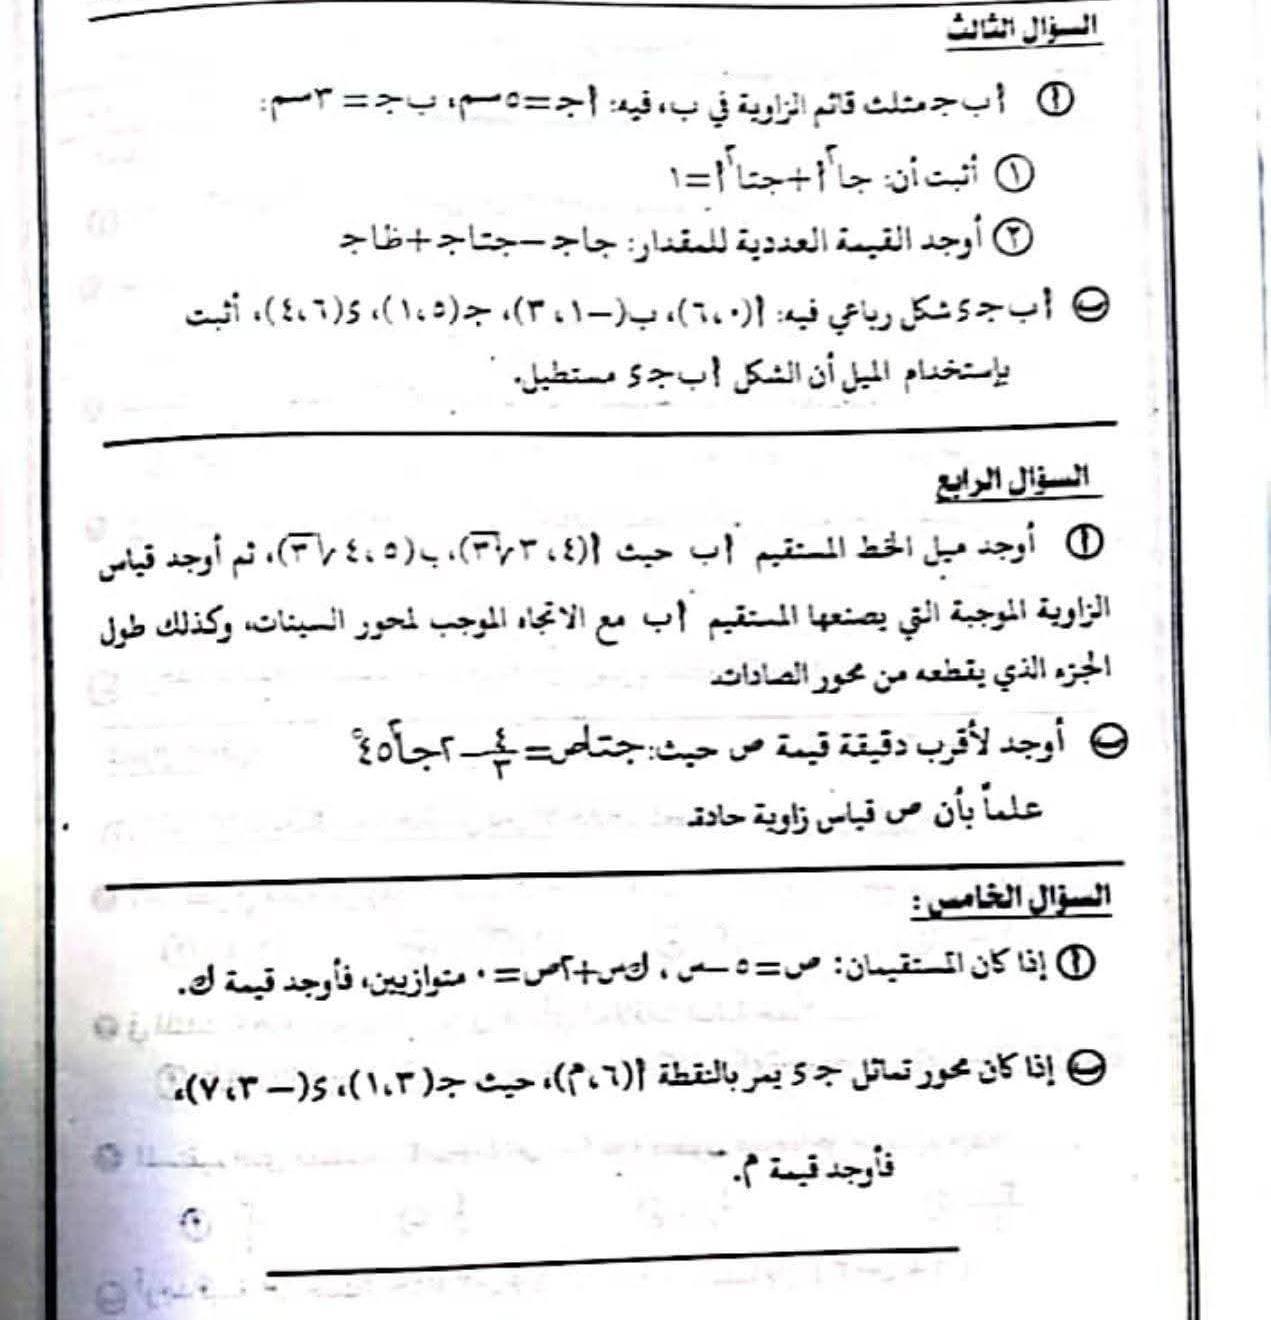 السؤال الثالث
أ أ ب جـ مثلث قائم الزاوية في ب، فيه: أ جـ = ٥ سم، ب جـ = ٣ سم:
١ أثبت أن: جا٢ أ + جتا٢ أ = ١
٢ أوجد القيمة العددية للمقدار: جا جـ − جتا جـ + ظا جـ
ب أ ب جـ د شكل رباعي فيه: أ(٠، ٦)، ب(−١، ٣)، جـ(٥، ١)، د(٦، ٤)، أثبت
بإستخدام الميل أن الشكل أ ب جـ د مستطيل.
السؤال الرابع
أ أوجد ميل الخط المستقيم أ ب حيث أ(٤، ٣√٣)، ب(٥، ٤√٣)، ثم أوجد قياس
الزاوية الموجبة التي يصنعها المستقيم أ ب مع الاتجاه الموجب لمحور السينات، وكذلك طول
الجزء الذي يقطعه من محور الصادات.
ب أوجد لأقرب دقيقة قيمة ص حيث: جتا ص = ٤/٣ − ٢ جا٢ ٤٥°
علماً بأن ص قياس زاوية حادة.
السؤال الخامس :
أ إذا كان المستقيمان: ص = ٥ − س، ك س + ٢ ص = ٠ متوازيين، فأوجد قيمة ك.
ب إذا كان محور تماثل جـ د يمر بالنقطة أ(٦، م)، حيث جـ(٣، ١)، د(−٣، ٧)،
فأوجد قيمة م.